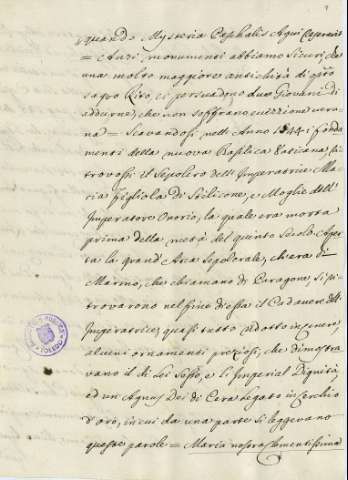 quando Mysteria Cephalis Aqui Caseravit
= Anzi, monumenti abbiamo sicuri, da
una molto maggiore antichità di qto
sagro Rito, ci persuadono due Giovani di
addurne, che non soffrano eccezione veru-
na = Scavandosi nell' Anno 1544 i fonda-
menti della nuova Basilica Vaticana, si
trovossi il Sepolcro dell' Imperatrice Ma-
ria Figliola di Stilicone, e Moglie dell'
Imperatore Onorio, la quale era morta
prima della metà del quinto Secolo. Aper-
ta la grand' Arca Sepolcrale, ch'era di
Marmo, che chiamano di Caragone, si ri-
trovarono nel fine di essa il Cadavere dell'
Imperatrice quasi tutto ridotto in cenere,
alcuni ornamenti preziosi, che dimostra-
vano il di Lei Sesso, e l' Imperial Dignità,
ed un Agnus Dei di Cera legato in cerchio
d'oro, in cui da una parte si leggevano
queste parole = Maria nostra Clementissima
TOLEDO